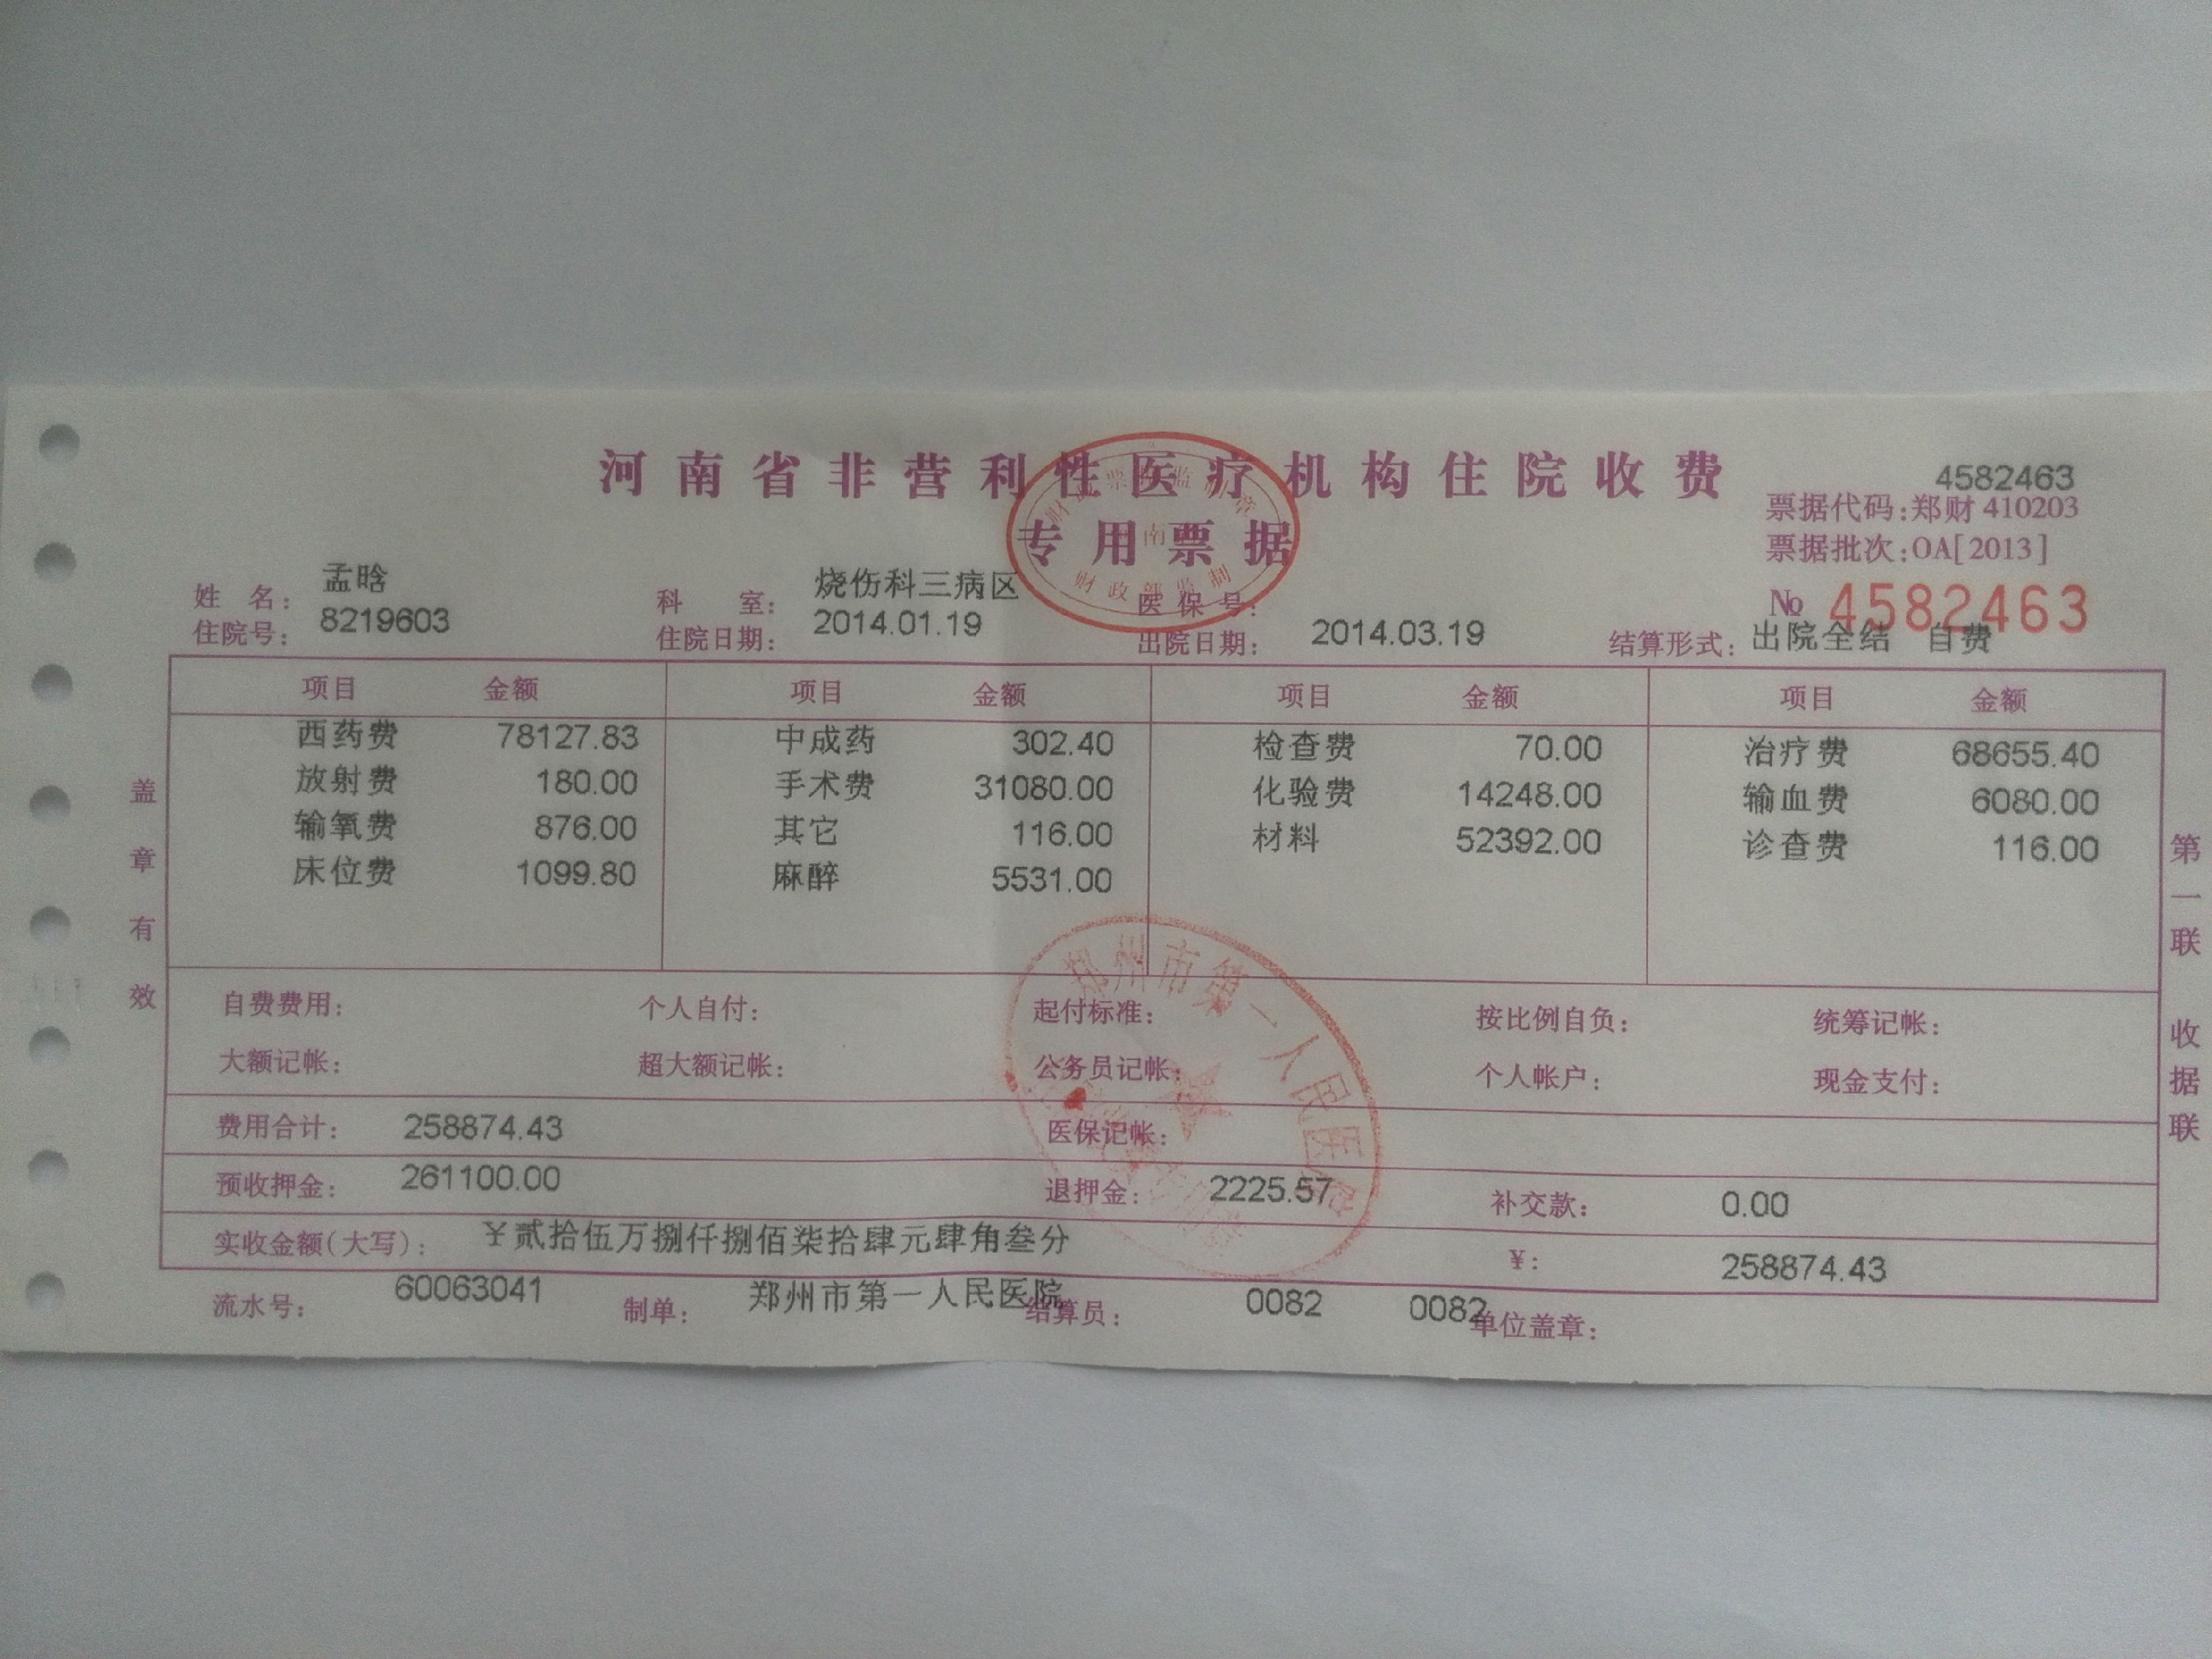 河南省非营利性医疗机构住院收费
专用票据
4582463
票据代码:郑财 410203
票据批次:OA[2013]
№ 4582463
姓 名: 孟晗 科 室: 烧伤科三病区 医保号:
住院号: 8219603 住院日期: 2014.01.19 出院日期: 2014.03.19 结算形式: 出院全结 自费
项目 金额 项目 金额 项目 金额 项目 金额
西药费 78127.83 中成药 302.40 检查费 70.00 治疗费 68655.40
放射费 180.00 手术费 31080.00 化验费 14248.00 输血费 6080.00
输氧费 876.00 其它 116.00 材料 52392.00 诊查费 116.00
床位费 1099.80 麻醉 5531.00
自费费用: 个人自付: 起付标准: 按比例自负: 统筹记帐:
大额记帐: 超大额记帐: 公务员记帐: 个人帐户: 现金支付:
费用合计: 258874.43 医保记帐:
预收押金: 261100.00 退押金: 2225.57 补交款: 0.00
实收金额(大写): ¥贰拾伍万捌仟捌佰柒拾肆元肆角叁分 ¥: 258874.43
流水号: 60063041 制单: 郑州市第一人民医院 结算员: 0082 0082 单位盖章:
盖章有效
第一联 收据联
郑州市第一人民医院
财政部监制